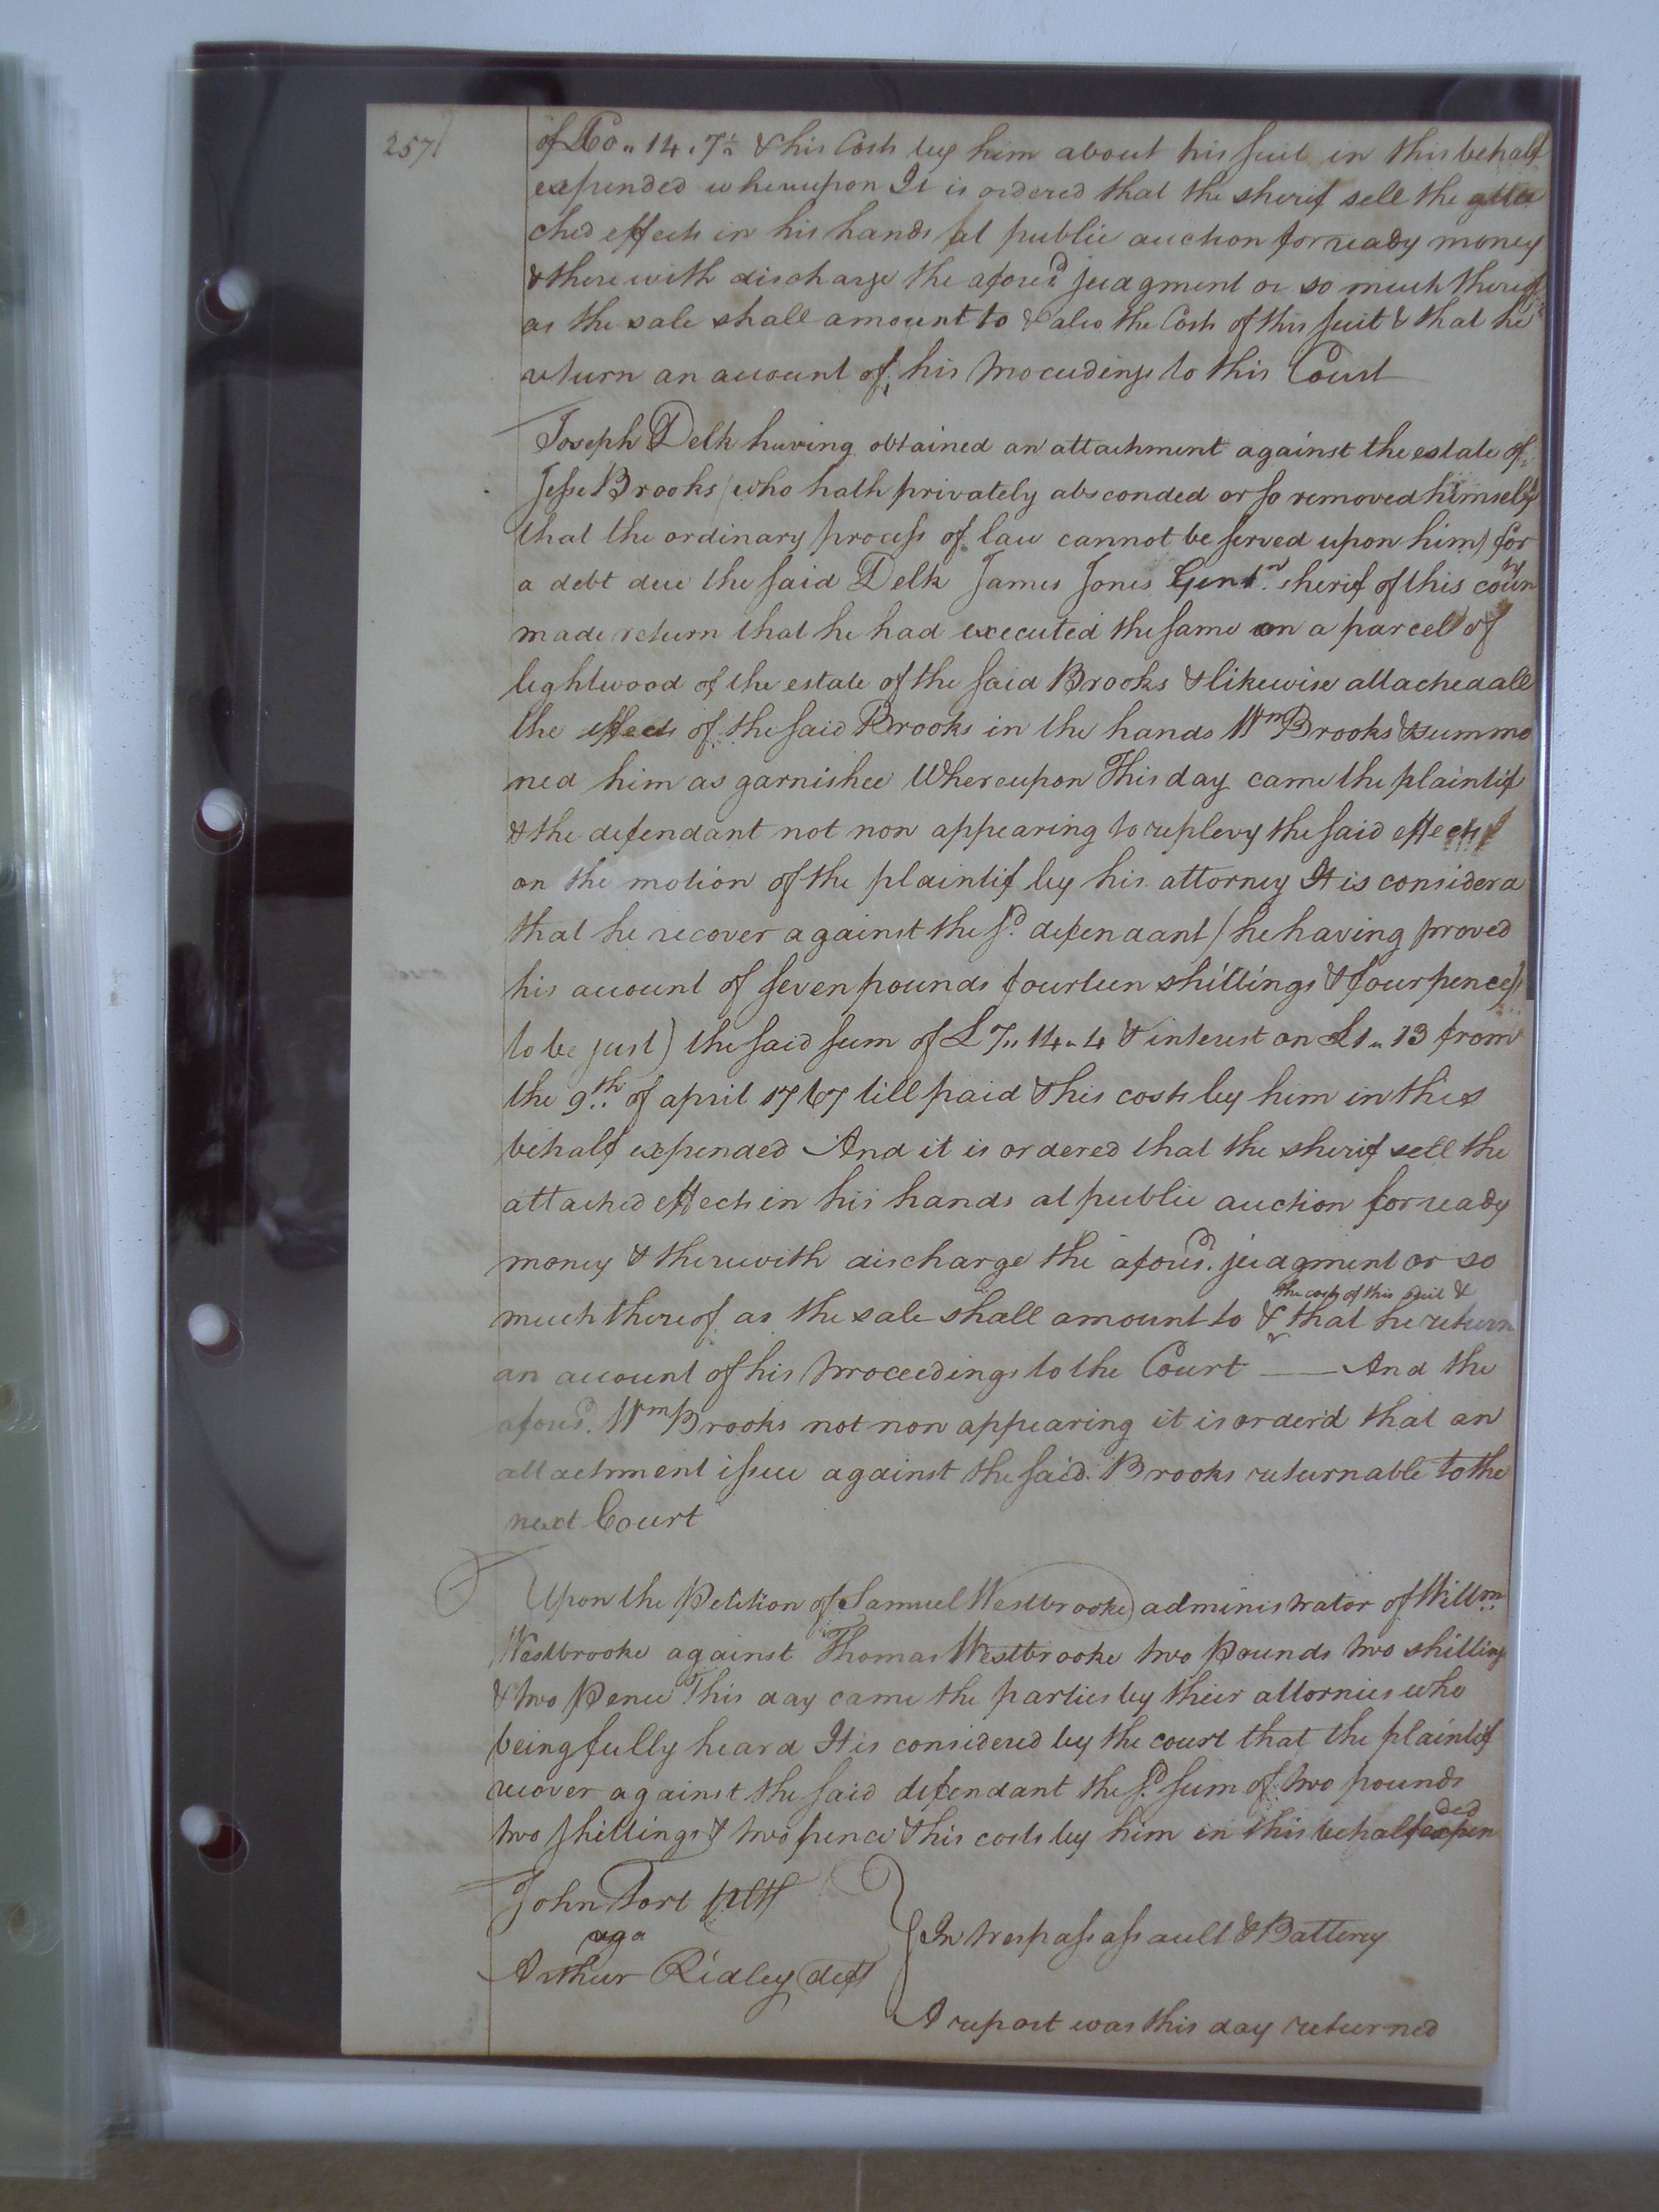 257)
of £0,, 14, 7½ & his Costs by him about his suit in this behalf
expended whereupon It is ordered that the sherif sell the atta
ched effects in his hands at public auction for ready money
& therewith discharge the afores.d judgment or so much thereof
as the sale shall amount to & also the Costs of this suit & that he
return an account of his proceedings to this Court
Joseph Delk having obtained an attachment against the estate of
Jesse Brooks (who hath privately absconded or so removed himself
that the ordinary process of law cannot be served upon him) for
a debt due the said Delk James Jones Gent.n sherif of this coun ty
made return that he had executed the same on a parcel of
lightwood of the estate of the said Brooks & likewise attached all
the effects of the said Brooks in the hands Wm Brooks & summo
ned him as garnishee Whereupon This day came the plaintif
& the defendant not non appearing to replevy the said effects
on the motion of the plaintif by his attorney It is considerd
that he recover against the s.d defendant (he having proved
his account of seven pounds fourteen shillings & four pence
to be just) the said sum of £7,, 14,, 4 & interest on £1,, 13 from
the 9.th of april 1767 till paid & his costs by him in this
behalf expended And it is ordered that the sherif sell the
attached effects in his hands at public auction for ready
money & therewith discharge the afores.d judgment or so
the costs of this suit &
much thereof as the sale shall amount to & that he return
an account of his proceedings to the Court —— And the
afores.d Wm Brooks not non appearing it is order'd that an
attachment issue against the said Brooks returnable to the
next Court
Upon the Petition of Samuel Westbrooke administrator of Will.m
Westbrooke against Thomas Westbrooke two Pounds two shillings
& two Pence This day came the parties by their attornies who
being fully heard It is considered by the court that the plaintif
recover against the said defendant the s.d sum of two pounds
two shillings & two pence & his costs by him in this behalf expen ded
John Fort plt
aga
Arthur Ridley deft
In trespass assault & Battery
A report was this day returned